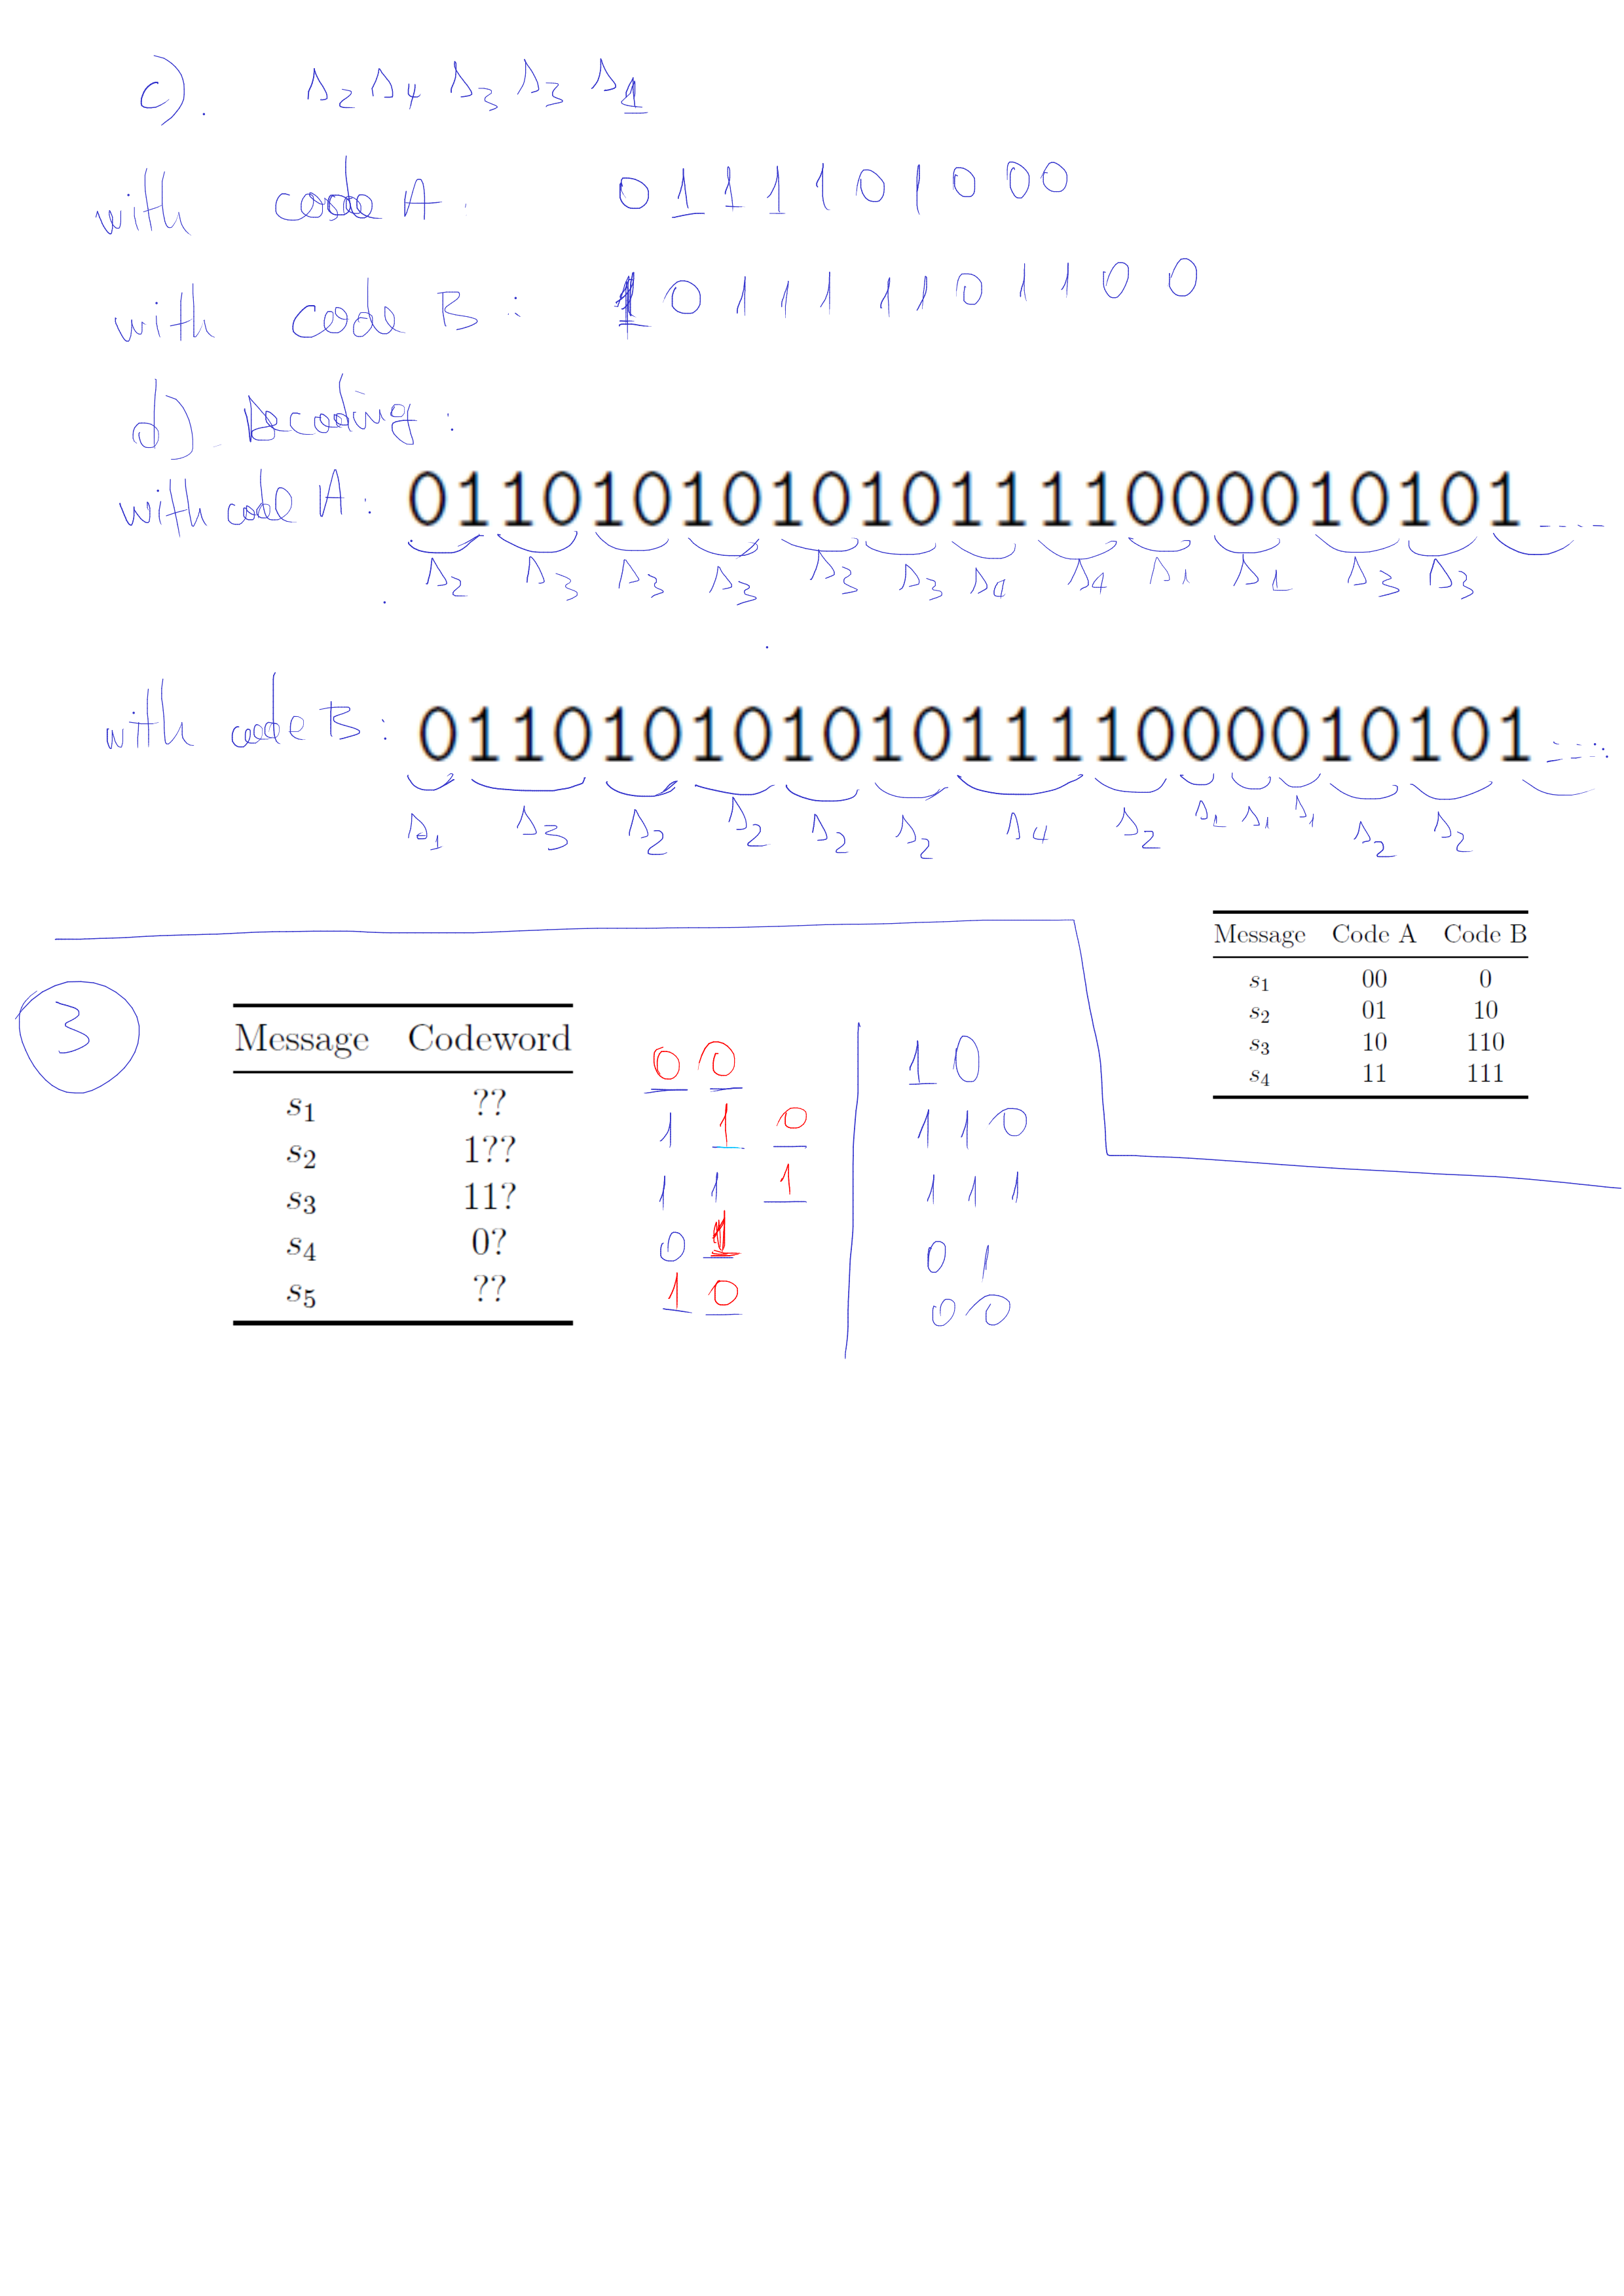 c). s2 s4 s3 s3 s1
with code A : 0 1 1 1 1 0 1 0 0 0
with code B : 1 0 1 1 1 1 1 0 1 1 0 0
d) Decoding :
with code A : 0110101010101111000010101 ....
s2 s3 s3 s3 s3 s3 s4 s4 s1 s1 s3 s3
with code B : 0110101010101111000010101 ....
s1 s3 s2 s2 s2 s2 s4 s2 s1 s1 s1 s2 s2
Message Code A Code B
s1 00 0
s2 01 10
s3 10 110
s4 11 111
3
Message Codeword
s1 ?? 0 0 1 0
s2 1?? 1 1 0 1 1 0
s3 11? 1 1 1 1 1 1
s4 0? 0 1 0 1
s5 ?? 1 0 0 0